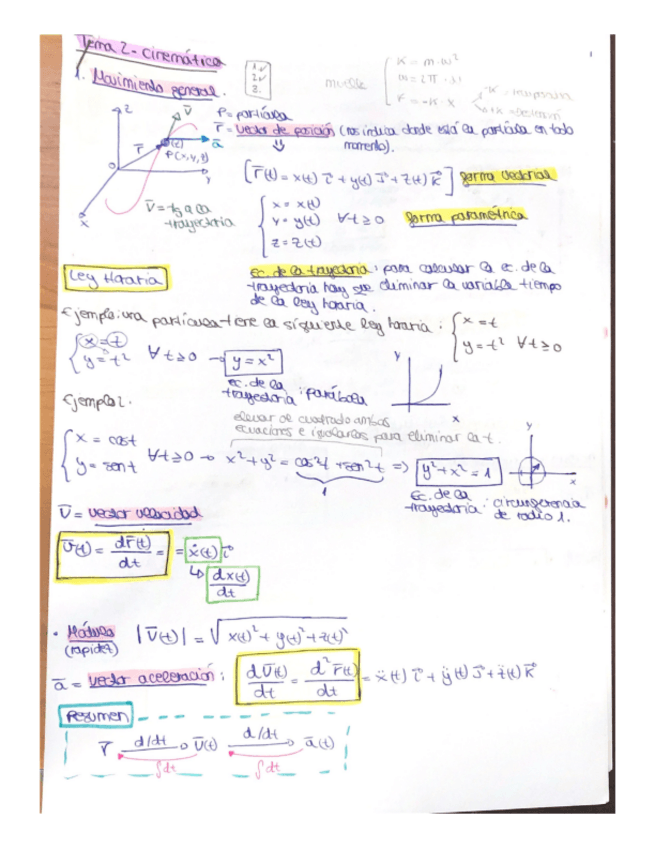 Tema 2 - Cinemática
1. Movimiento general.
1. ✓
2 ✓
3.
muelle
K = m·ω²
ω = 2π · f
F = -K·x
P = partícula
r̄ = vector de posición (nos indica donde está la partícula en todo
momento).
z
v̄
ā
r̄
P(x,y,z)
0
y
x
v̄ = tg a la
trayectoria
[r̄(t) = x(t) i⃗ + y(t) j⃗ + z(t) k⃗] forma vectorial
x = x(t)
y = y(t) ∀t≥0 forma paramétrica
z = z(t)
Ley Horaria
ec. de la trayectoria: para calcular la ec. de la
trayectoria hay que eliminar la variable tiempo
de la ley horaria.
Ejemplo: una partícula tiene la siguiente ley horaria: x = t
y = t² ∀t≥0
x = t
y = t² ∀t≥0 → y = x²
ec. de la
trayectoria: parábola
y
x
Ejemplo 2.
elevar al cuadrado ambas
ecuaciones e igualarlas para eliminar la t.
x = cos t
y = sen t ∀t≥0 → x² + y² = cos²t + sen²t => y² + x² = 1
1
y
x
ec. de la
trayectoria: circunferencia
de radio 1.
v̄ = vector velocidad
v̄(t) = dr̄(t)/dt = = ẋ(t) i⃗
↳ dx(t)/dt
• Módulo |v̄(t)| = √x(t)² + y(t)² + z(t)²
(rapidez)
ā = vector aceleración: dv̄(t)/dt = d²r̄(t)/dt = ẍ(t) i⃗ + ÿ(t) j⃗ + z̈(t) k⃗
Resumen
r̄ d/dt → v̄(t) d/dt → ā(t)
∫dt ∫dt